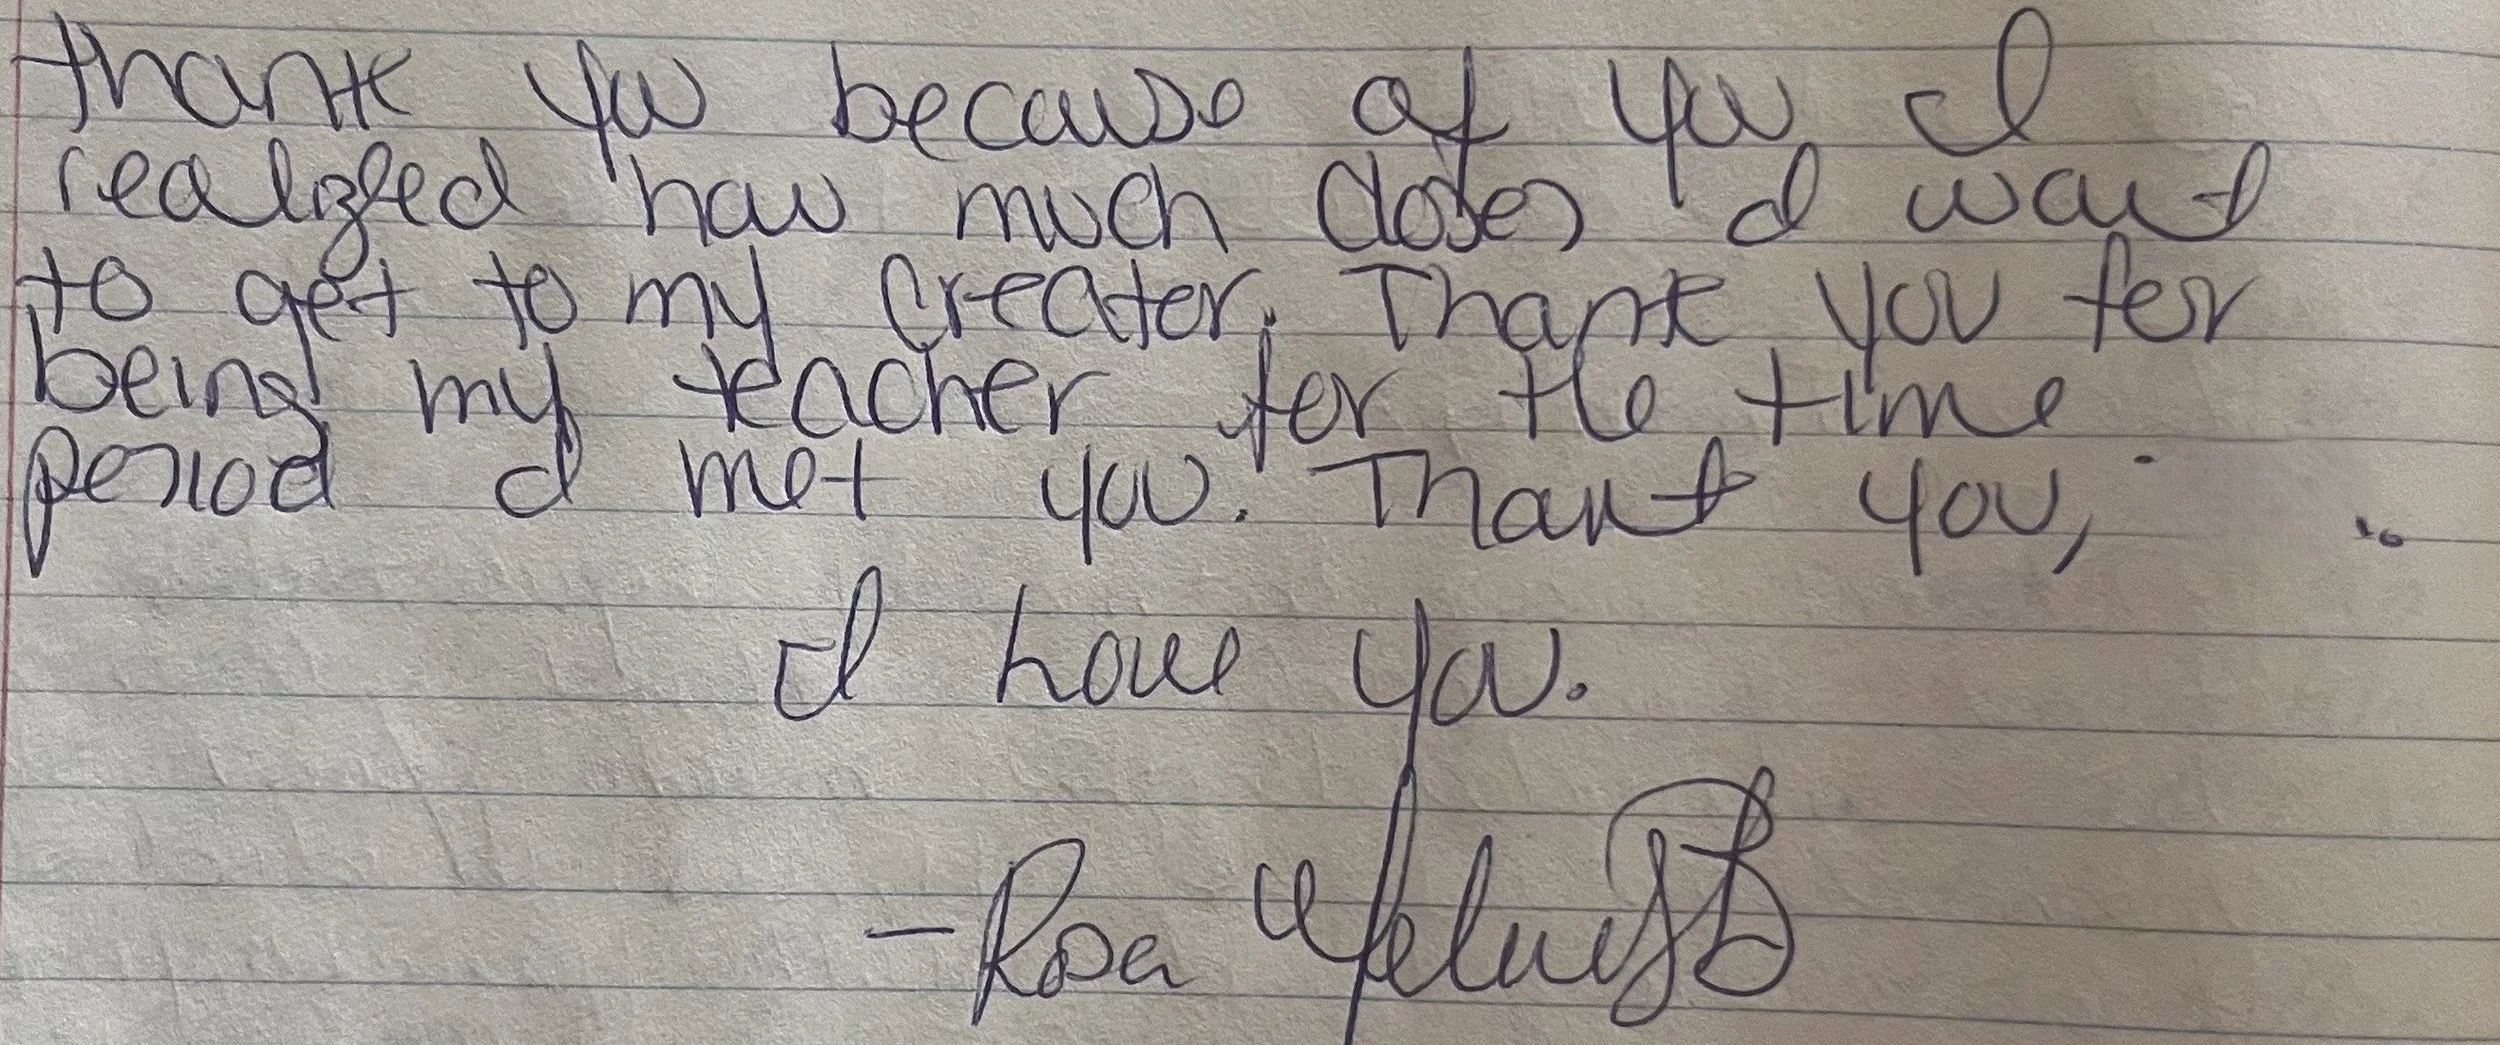 Thank you because of you I
realized how much closer I want
to get to my creator. Thank you for
being my teacher for the time
period I met you. Thank you,
I love you.
- Rosa